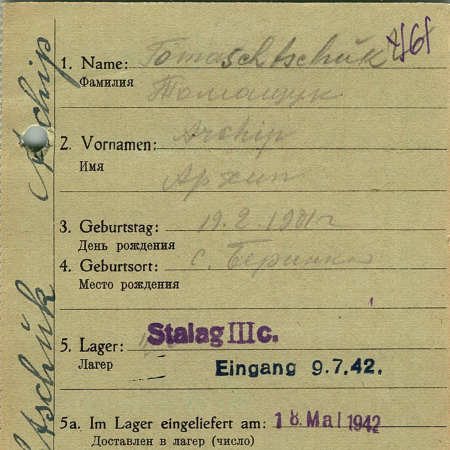 1. Name: Tomaschtschük
Фамилия Томащук
2. Vornamen: Archip
Имя Архип
3. Geburtstag: 19.2.1901 г
День рождения
4. Geburtsort: с.
Место рождения
5. Lager: Stalag III c.
Лагер Eingang 9.7.42.
5a. Im Lager eingeliefert am: 18. Mai 1942
Доставлен в лагер (число)
Archip